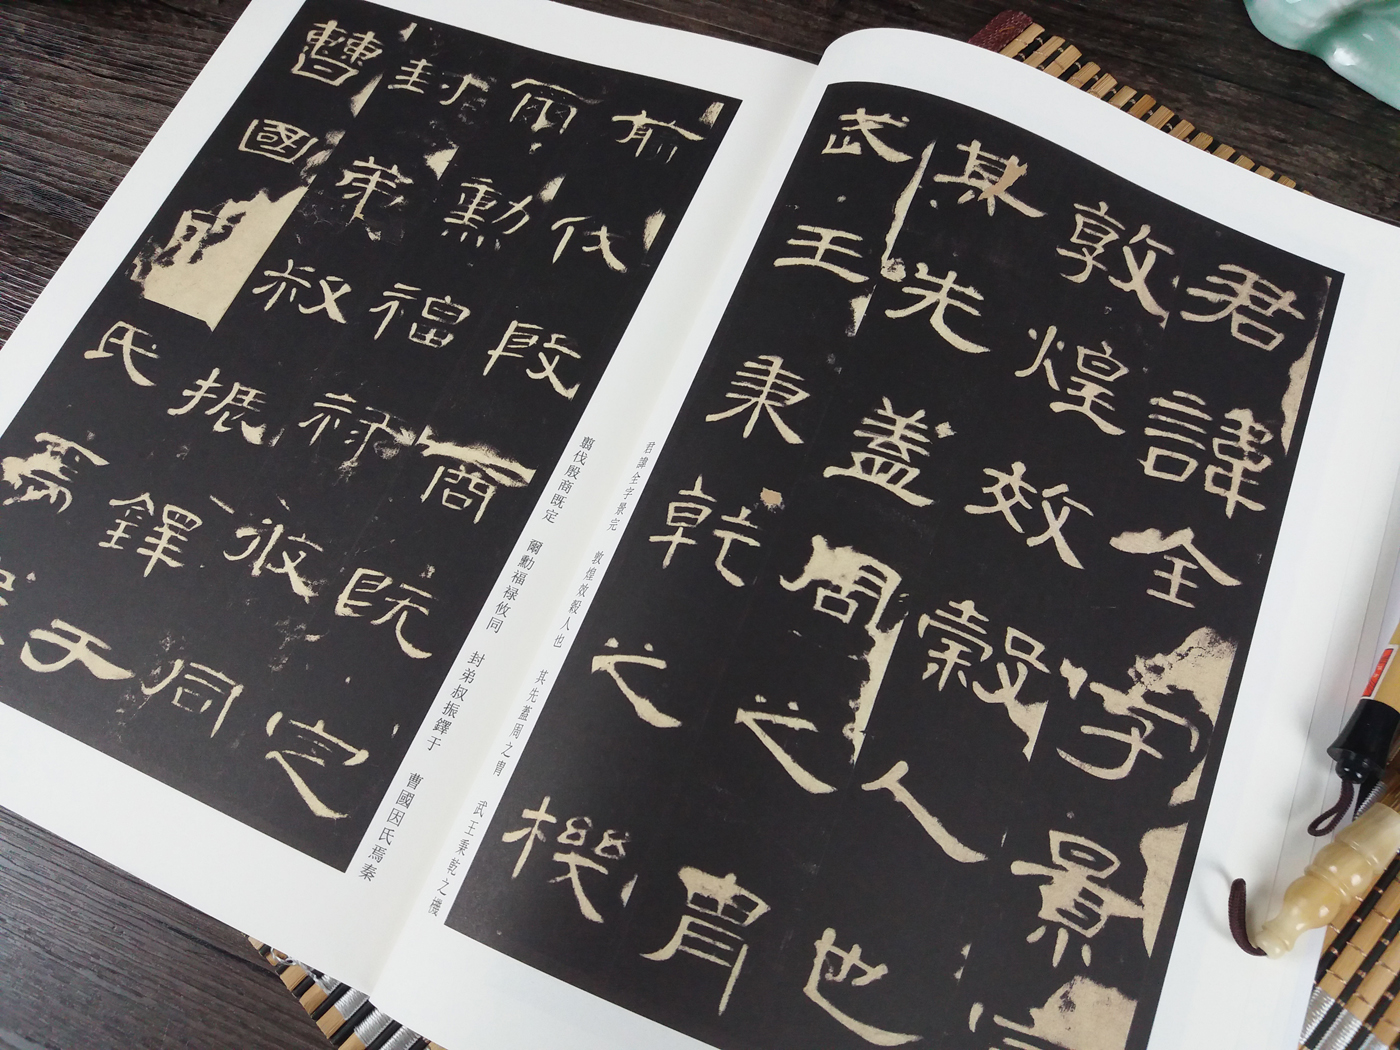 君諱全字景完
敦煌效穀人也
其先蓋周之胄
武王秉乾之機
君諱全字景完 敦煌效穀人也 其先蓋周之胄 武王秉乾之機
翦伐殷商既定
爾勳福祿攸同
封弟叔振鐸于
曹國因氏焉秦
翦伐殷商既定 爾勳福禄攸同 封弟叔振鐸于 曹國因氏焉秦